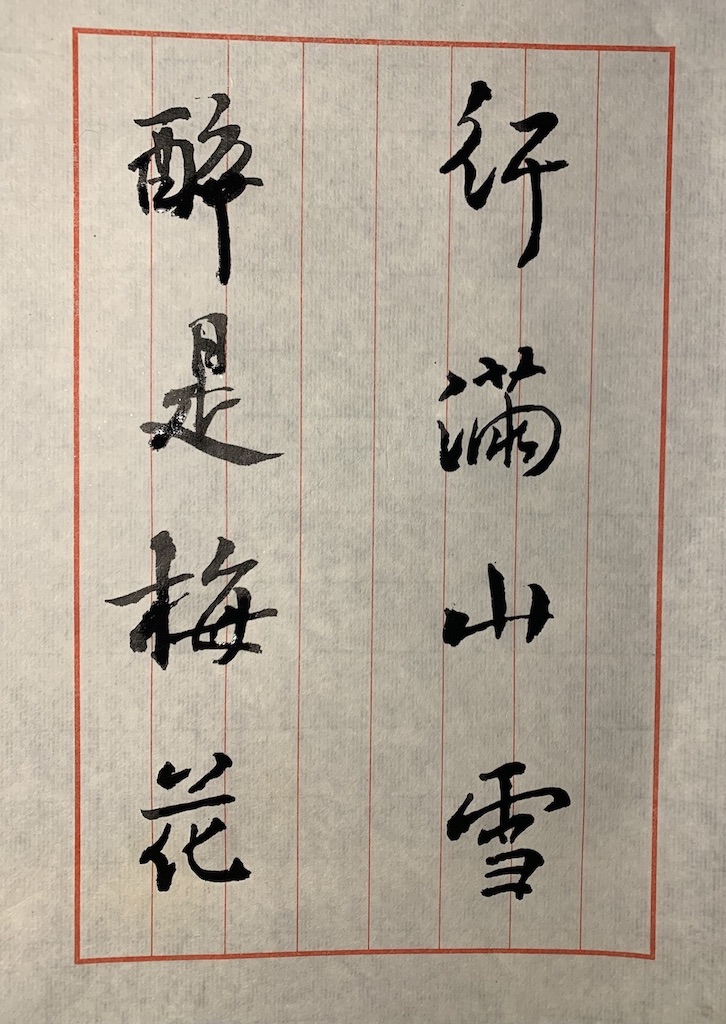 行满山雪
醉是梅花